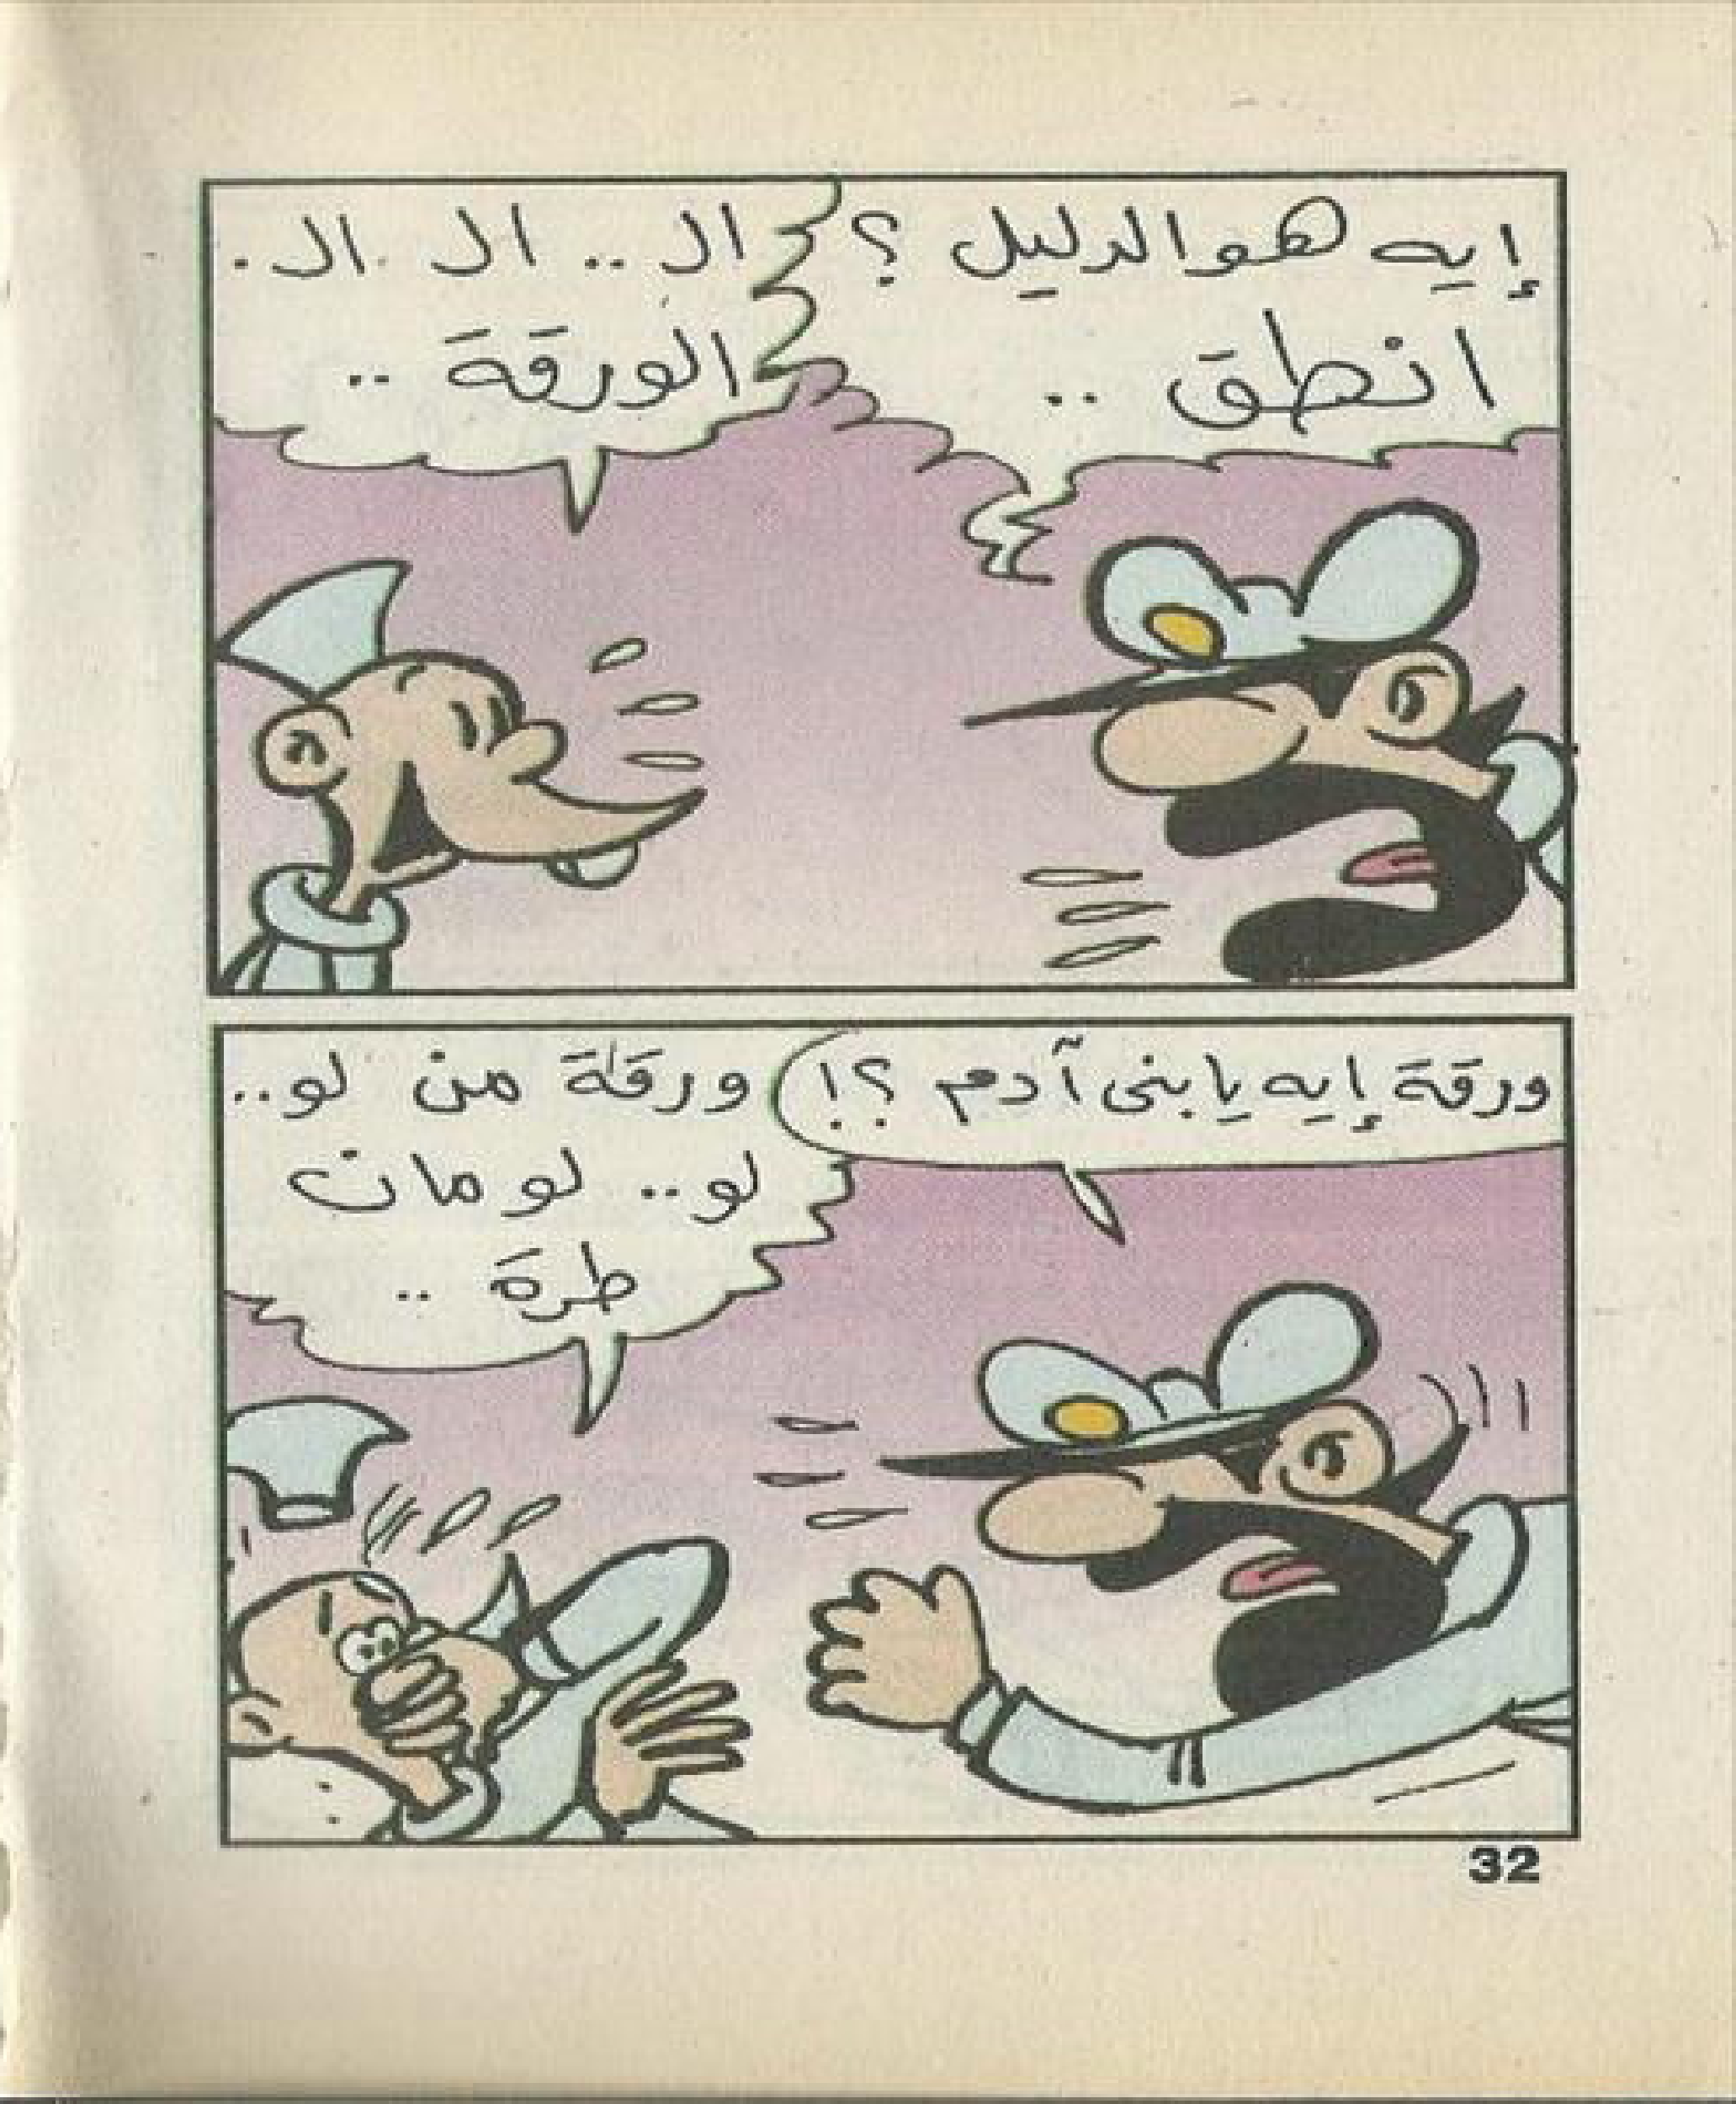 إيه هو الدليل ؟
انطق ..
ال .. ال ال .
الورقة ..
ورقة إيه يا بنى آدم ؟!
ورقة من لو ..
لو .. لو مات
طرة ..
32